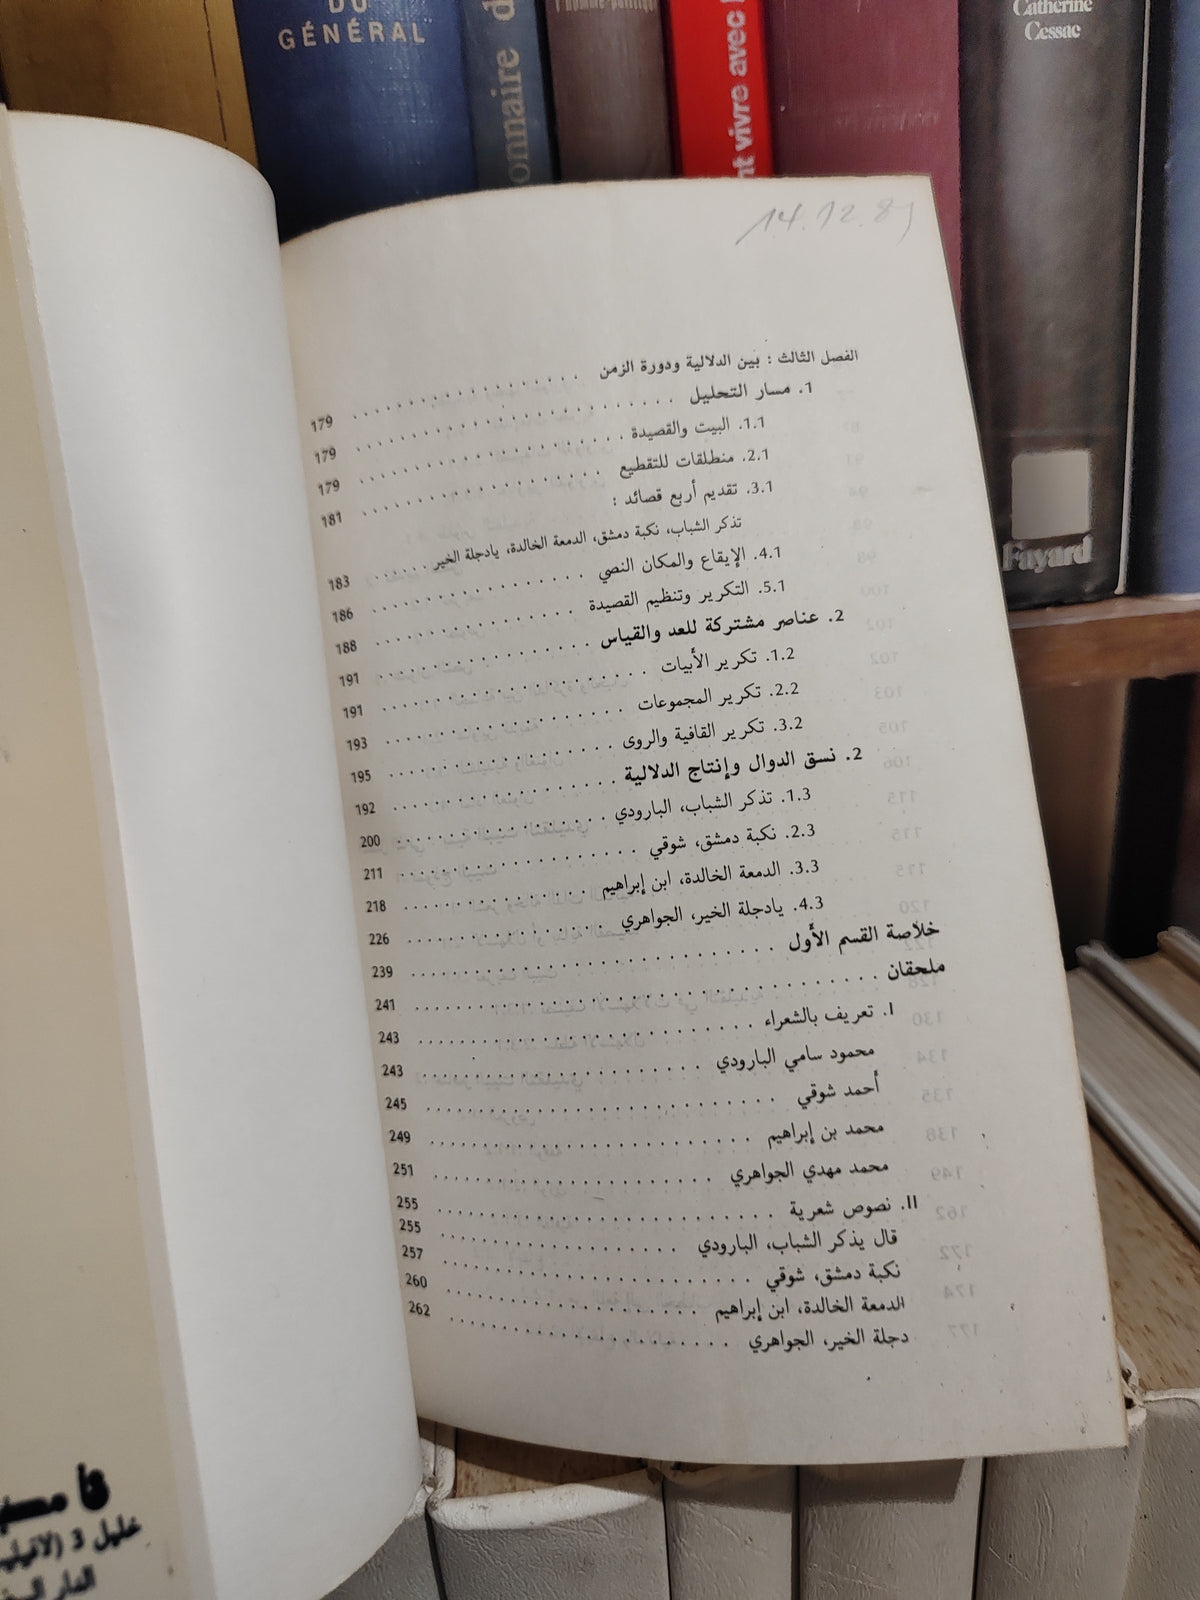 DU
GÉNÉRAL
onnaire d
l'homme-politique
nt vivre avec
Catherine
Cessac
Fayard
14.12.89
الفصل الثالث : بين الدلالية ودورة الزمن 179
1. مسار التحليل 179
1.1. البيت والقصيدة 179
2.1. منطلقات للتقطيع 181
3.1. تقديم أربع قصائد :
تذكر الشباب، نكبة دمشق، الدمعة الخالدة، يادجلة الخير 183
4.1. الإيقاع والمكان النصي 186
5.1. التكرير وتنظيم القصيدة 188
2. عناصر مشتركة للعد والقياس 191
1.2. تكرير الأبيات 191
2.2. تكرير المجموعات 193
3.2. تكرير القافية والروى 195
2. نسق الدوال وإنتاج الدلالية 192
1.3. تذكر الشباب، البارودي 200
2.3. نكبة دمشق، شوقي 211
3.3. الدمعة الخالدة، ابن إبراهيم 218
4.3. يادجلة الخير، الجواهري 226
خلاصة القسم الأول 239
ملحقان 241
I. تعريف بالشعراء 243
محمود سامي البارودي 243
أحمد شوقي 245
محمد بن إبراهيم 249
محمد مهدي الجواهري 251
II. نصوص شعرية 255
قال يذكر الشباب، البارودي 255
نكبة دمشق، شوقي 257
الدمعة الخالدة، ابن إبراهيم 260
دجلة الخير، الجواهري 262
خليل 3